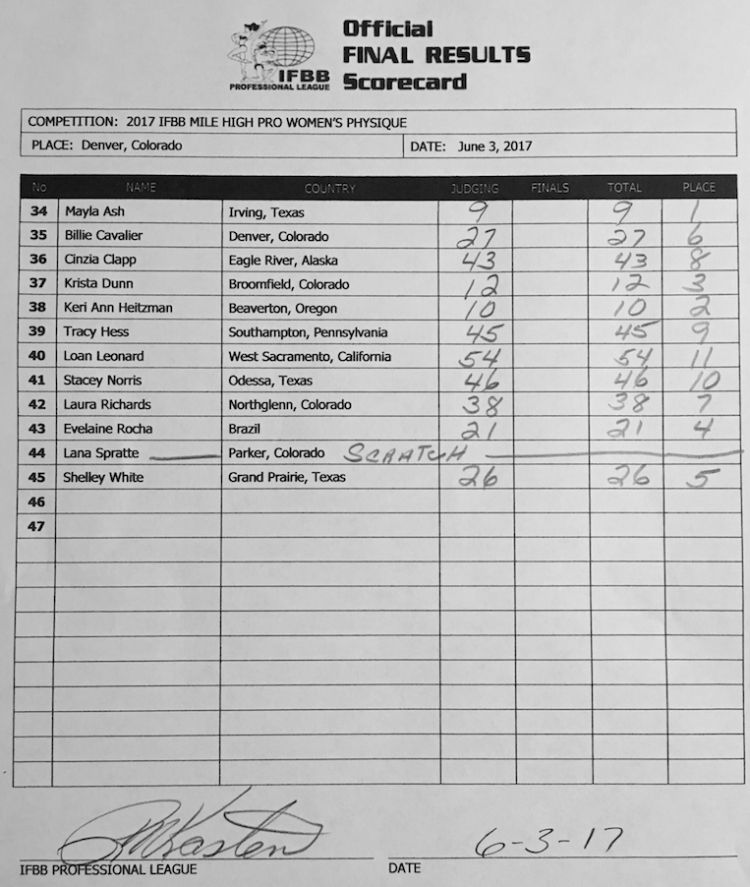 Official
FINAL RESULTS
Scorecard
IFBB
PROFESSIONAL LEAGUE
COMPETITION: 2017 IFBB MILE HIGH PRO WOMEN'S PHYSIQUE
PLACE: Denver, Colorado DATE: June 3, 2017
No NAME COUNTRY JUDGING FINALS TOTAL PLACE
34 Mayla Ash Irving, Texas 9 9 1
35 Billie Cavalier Denver, Colorado 27 27 6
36 Cinzia Clapp Eagle River, Alaska 43 43 8
37 Krista Dunn Broomfield, Colorado 12 12 3
38 Keri Ann Heitzman Beaverton, Oregon 10 10 2
39 Tracy Hess Southampton, Pennsylvania 45 45 9
40 Loan Leonard West Sacramento, California 54 54 11
41 Stacey Norris Odessa, Texas 46 46 10
42 Laura Richards Northglenn, Colorado 38 38 7
43 Evelaine Rocha Brazil 21 21 4
44 Lana Spratte Parker, Colorado SCRATCH
45 Shelley White Grand Prairie, Texas 26 26 5
46
47
6-3-17
IFBB PROFESSIONAL LEAGUE DATE